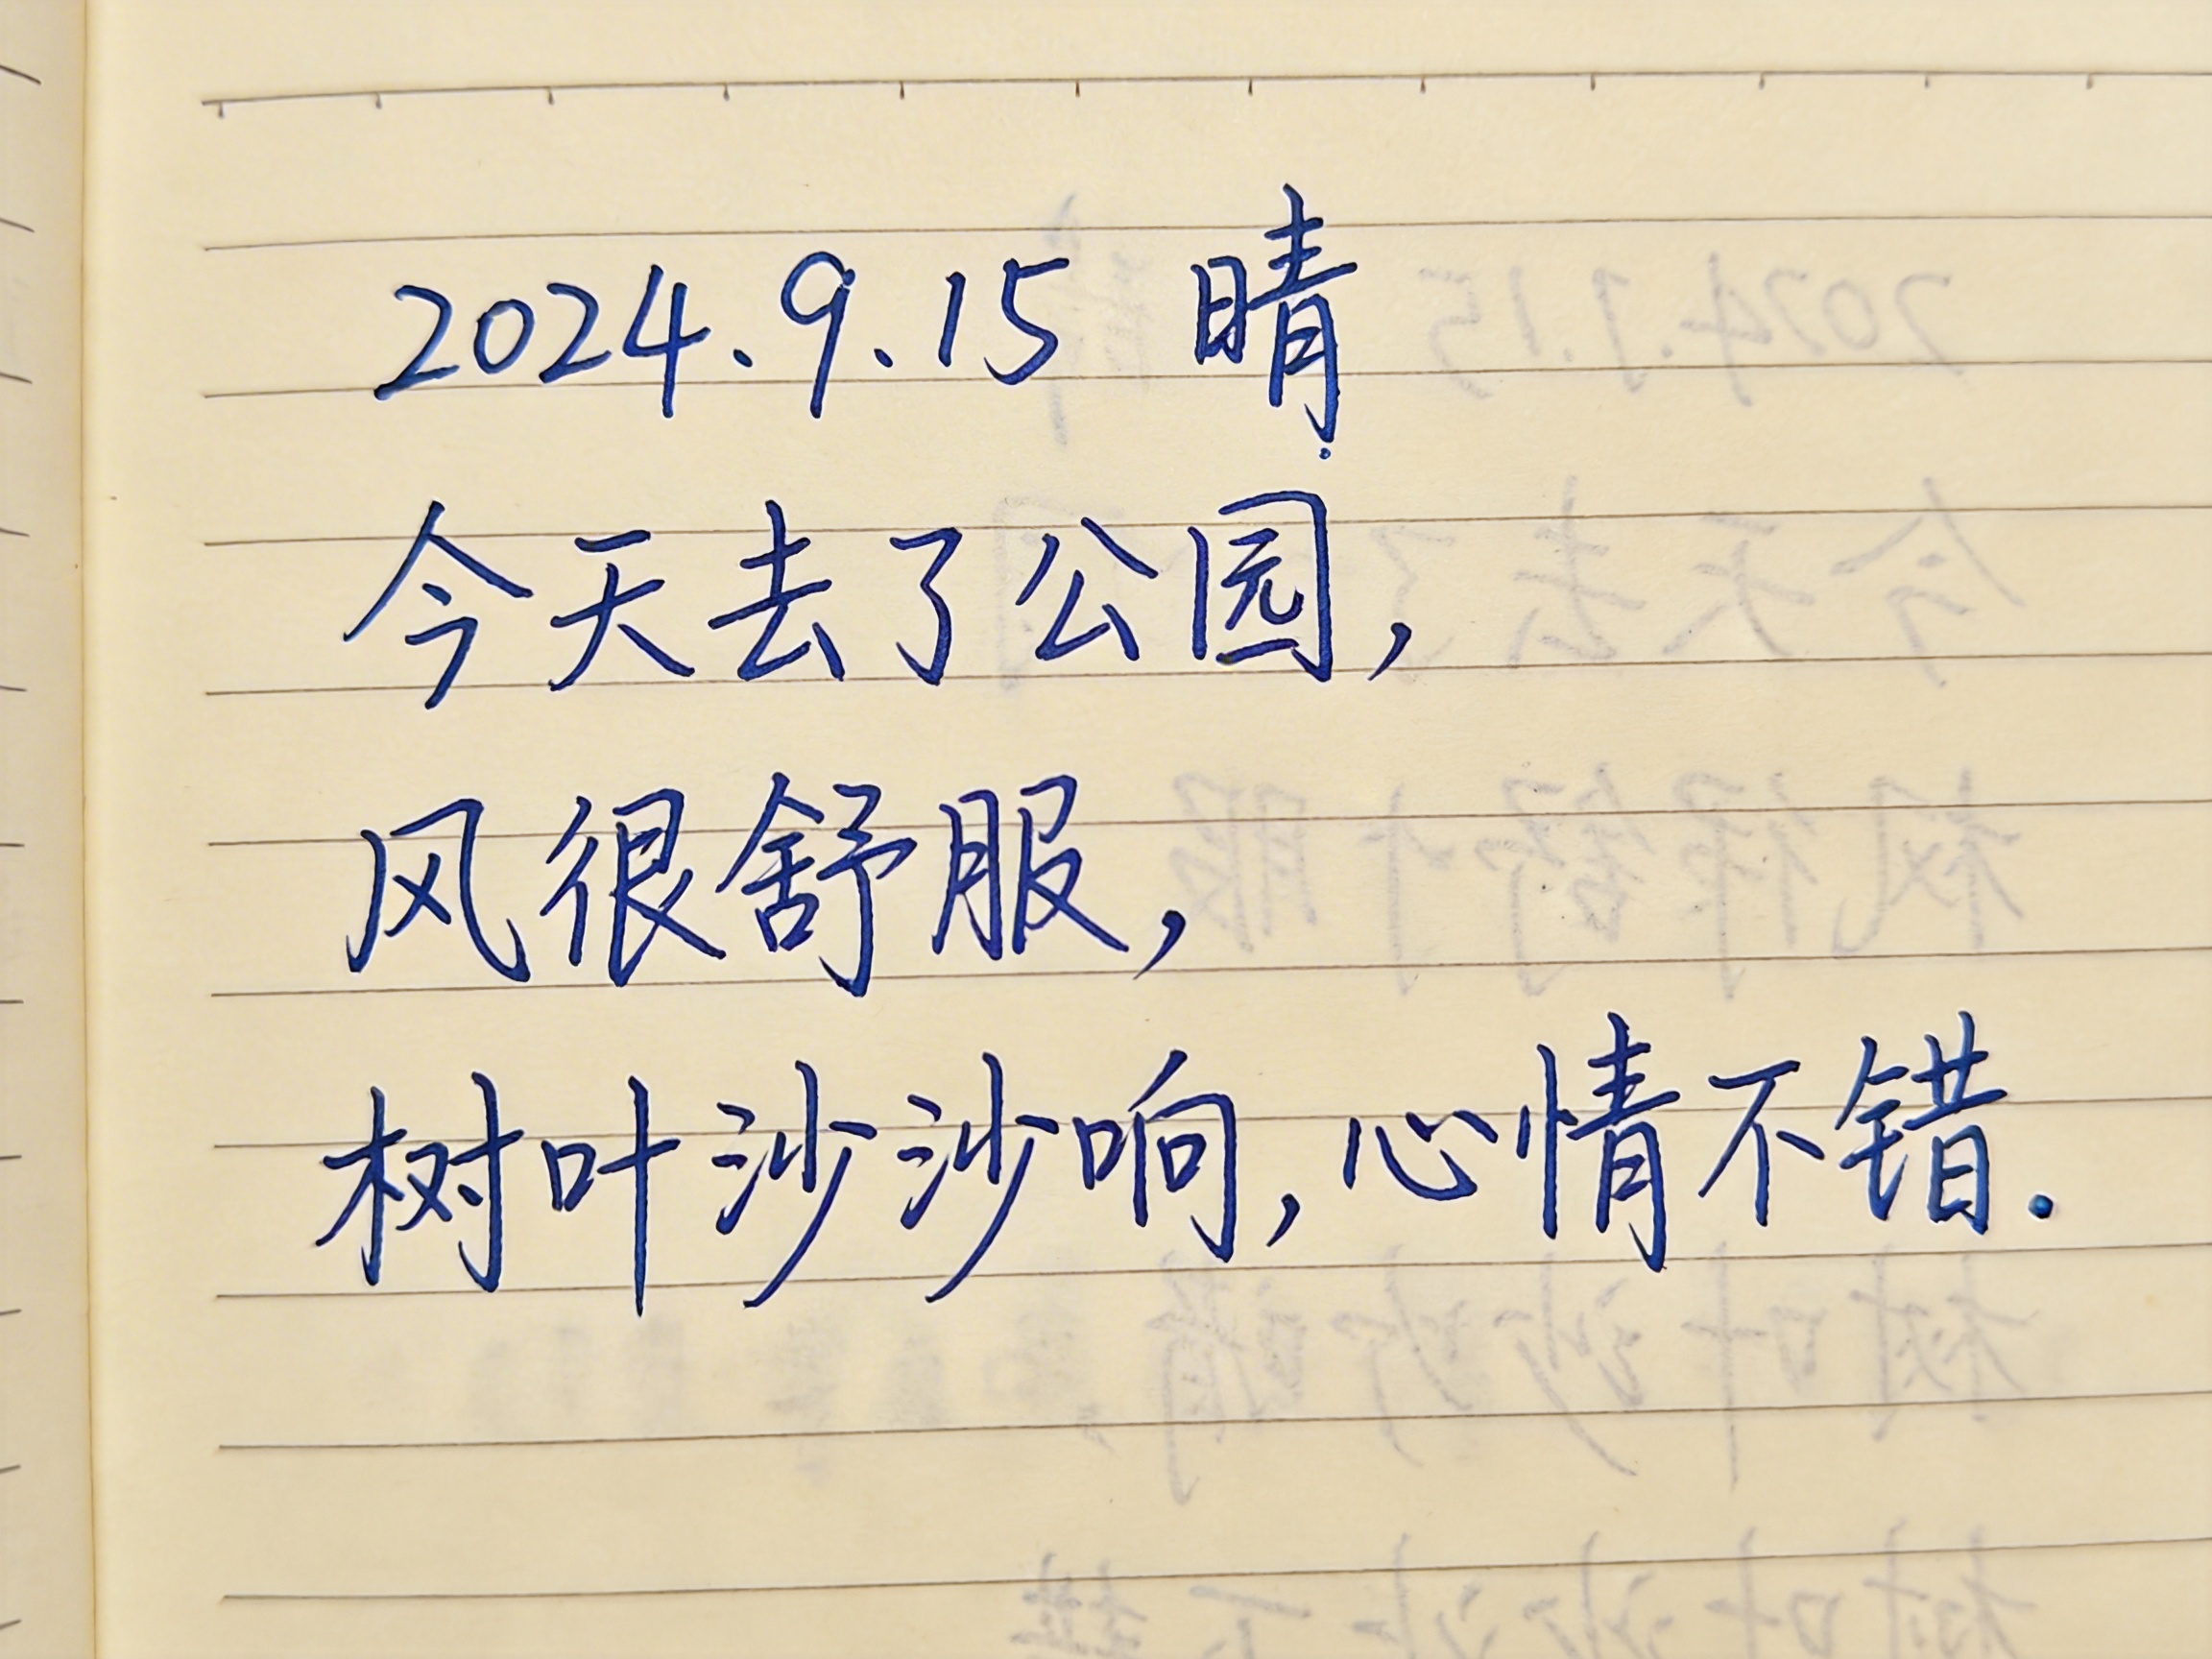 2024.9.15 晴
今天去了公园,
风很舒服,
树叶沙沙响,心情不错.